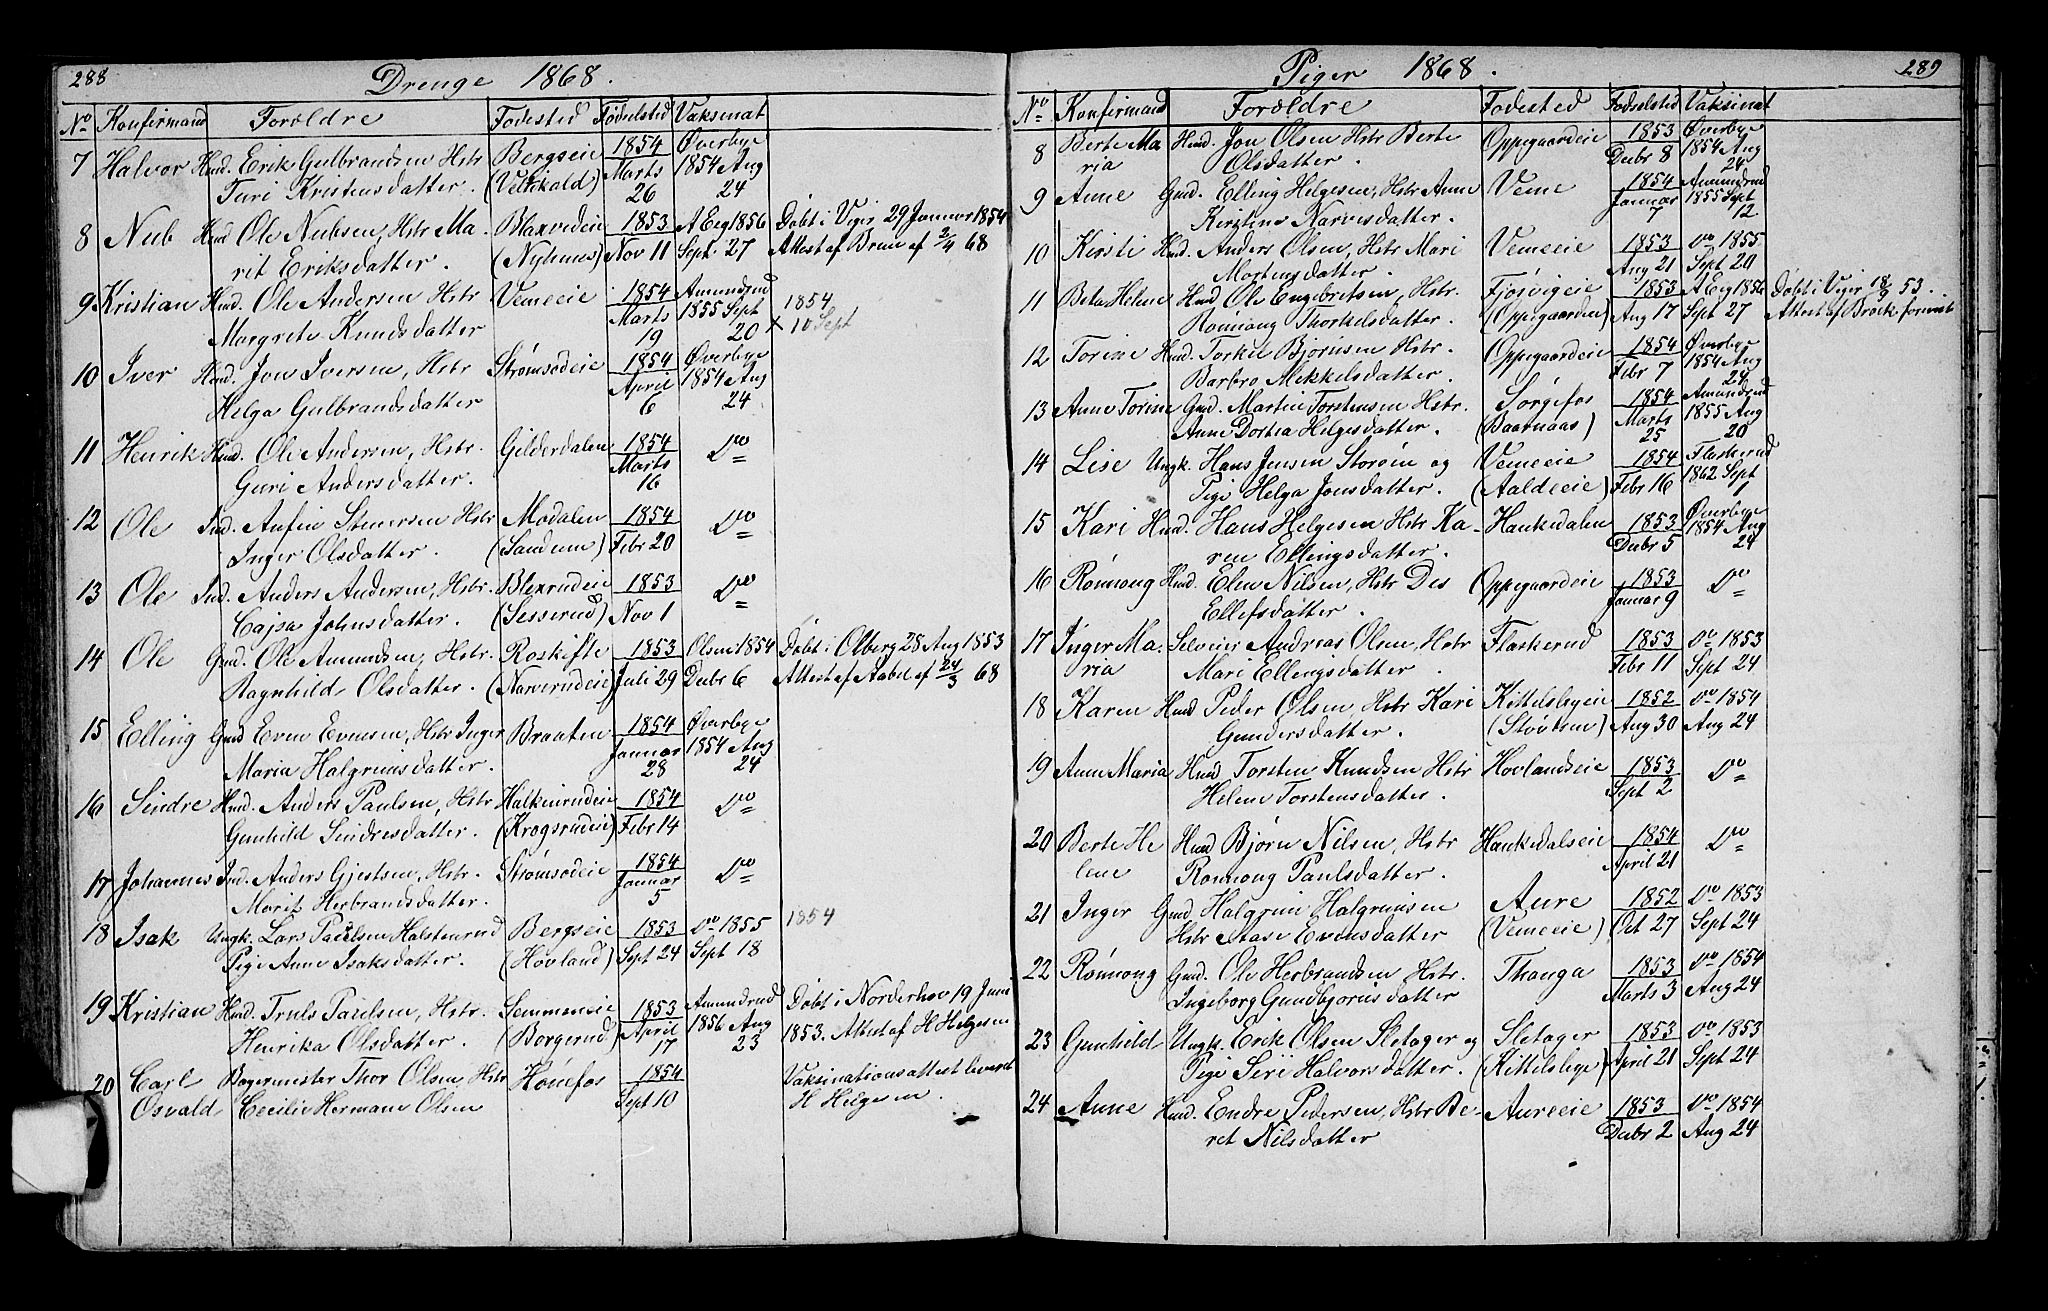 288
Drenge 1868.
No Konfirmand Forældre Fødested Fødselstid Vaksinat
7 Halvor Hmd. Erik Gulbrandsen Hstr Turi Kristensdatter. Bergseie (Velskald) 1854 Marts 26 Øverbye 1854 Aug 24
8 Nub Hmd Ole Nubsen, Hstr Marit Eriksdatter. (Nyhuus) 1853 Nov 11 A Eeg 1856 Sept. 27 Døbt i Viger 29 Januar 1854 Attest af Bruun af 2/4 68
9 Kristian Hmd. Ole Andersen Hstr Margrete Knudsdatter Vemeeie 1854 Marts 19 Aamundrud 1855 Sept 20 1854 x 10 Sept
10 Iver Hmd. Jon Iversen, Hstr Helga Gulbrandsdatter Strømsødeie 1854 April 6 Øverbye 1854 Aug 24
11 Henrik Hmd. Ole Andersen, Hstr. Guri Andersdatter. Gilderdalen 1854 Marts 16 Do
12 Ole Ind. Anfin Stenersen Hstr Inger Olsdatter. Modalen (Sandum) 1854 Febr 20 Do
13 Ole Ind. Anders Andersen, Hstr. Cajsa Johnsdatter. (Sesserud) 1853 Nov 1 Do
14 Ole Gmd. Ole Amundsen, Hstr. Ragnhild Olsdatter. Roskifte (Narverudeie) 1853 Juli 29 Olsen 1854 Decbr 6 Døbt i Olberg 28 Aug 1853 Attest af Aabel af 24/3 68
15 Elling Gmd Even Evensen, Hstr Inger Maria Halgrimsdatter. Braaten 1854 Januar 28 Øverbye 1854 Aug 24
16 Sindre Hmd. Anders Paulsen, Hstr Gunhild Sindresdatter. Halkinrudeie (Krogsrudeie) 1854 Febr 14 Do
17 Johannes Ind. Anders Gjestsen, Hstr. Marit Herbrandsdatter. Strømsødeie 1854 Januar 5 Do
18 Isak Ungk. Lars Paulsen Halstenrud Pige Anne Isaksdatter. Bergseie (Hovland) 1853 Sept 24 Do 1855 Sept 18 1854
19 Kristian Hmd. Truls Paulsen, Hstr. Henrika Olsdatter. Semmeneie (Borgerud) 1853 April 17 Aamundrud 1856 Aug 23 Døbt i Norderhov 19 Juni 1853. Attest af H Helgesen
20 Carl Osvald Bagermester Thor Olsen, Hstr Cecilie Hermane Olsen Hønefos 1854 Sept 10 Vaksinationsattest leveret H Helgesen.
Piger 1868.
289
No Konfirmand Forældre Fødested Fødselstid Vaksinat
8 Berte Maria Hmd. Jon Olsen Hstr Berte Olsdatter. Oppegaardeie 1853 Decbr 8 Øverbye 1854 Aug 24
9 Anne Gmd. Elling Helgesen, Hstr Anne Kirstine Narvesdatter. Veme 1854 Januar 7 Aamundrud 1855 Sept 12
10 Kirsti Hmd. Anders Olsen, Hstr Mari Mortensdatter. Vemeeie 1853 Aug 21 Do 1855 Sept 20
11 Beta Helene Hmd Ole Engebretsen, Hstr. Rønnong Thorkelsdatter. Fjøsvigeie (Oppegaarden) 1853 Aug 17 A Eeg 1856 Sept 27 Døbt i Viger 18/9 53. Attest af Brock forevist
12 Torine Hmd. Torkel Bjørnsen Hstr. Barbro Mikkelsdatter. Oppegaardeie 1854 Febr 7 Øverbye 1854 Aug 24
13 Anne Torine Gmd. Martin Torstensen Hstr. Anne Dortea Helgesdatter. Sørgefos (Baarnaas) 1854 Marts 25 Aamundrud 1855 Aug 20
14 Lise Ungk. Hans Jensen Storøen og Pige Helga Jonsdatter. Vemeeie (Aaldeeie) 1854 Febr 16 Flaskerud 1862 Sept
15 Kari Hmd. Hans Helgesen Hstr Karen Ellingsdatter. Haukedalen 1853 Decbr 5 Øverbye 1854 Aug 24
16 Rønnong Hmd. Elen Nilsen, Hstr Des Ellefsdatter. Oppegaardeie 1853 Januar 9 Do
17 Inger Maria Selveier Andreas Olsen, Hstr Mari Ellingsdatter. Flaskerud 1853 Febr 11 Do 1853 Sept 24
18 Karen Hmd Peder Olsen, Hstr Kari Gundersdatter. Kittelsbyeie (Støvtsen) 1852 Aug 30 Do 1854 Aug 24
19 Anne Maria Hmd Torsten Knudsen Hstr Helene Torstensdatter. Hovlandseie 1853 Sept 2 Do
20 Berte Helene Hmd Bjørn Nilsen, Hstr Rønnong Paulsdatter. Haukedalseie 1854 April 21 Do
21 Inger Gmd Halgrim Halgrimsen Hstr Aase Evensdatter Aure (Vemeeie) 1852 Oct 27 Do 1853 Sept 24
22 Rønnong Gmd. Ole Herbrandsen Hstr. Ingeborg Gundbjørnsdatter Thonga 1853 Marts 3 Do 1854 Aug 24
23 Gunhild Ungk. Erik Olsen Sletager og Pige Siri Halvorsdatter. Sletager (Kittelsbye) 1853 April 21 Do 1853 Sept 24
24 Anne Hmd. Endre Pedersen, Hstr Beret Nilsdatter Aureeie 1853 Decbr 2 Do 1854 Aug 24